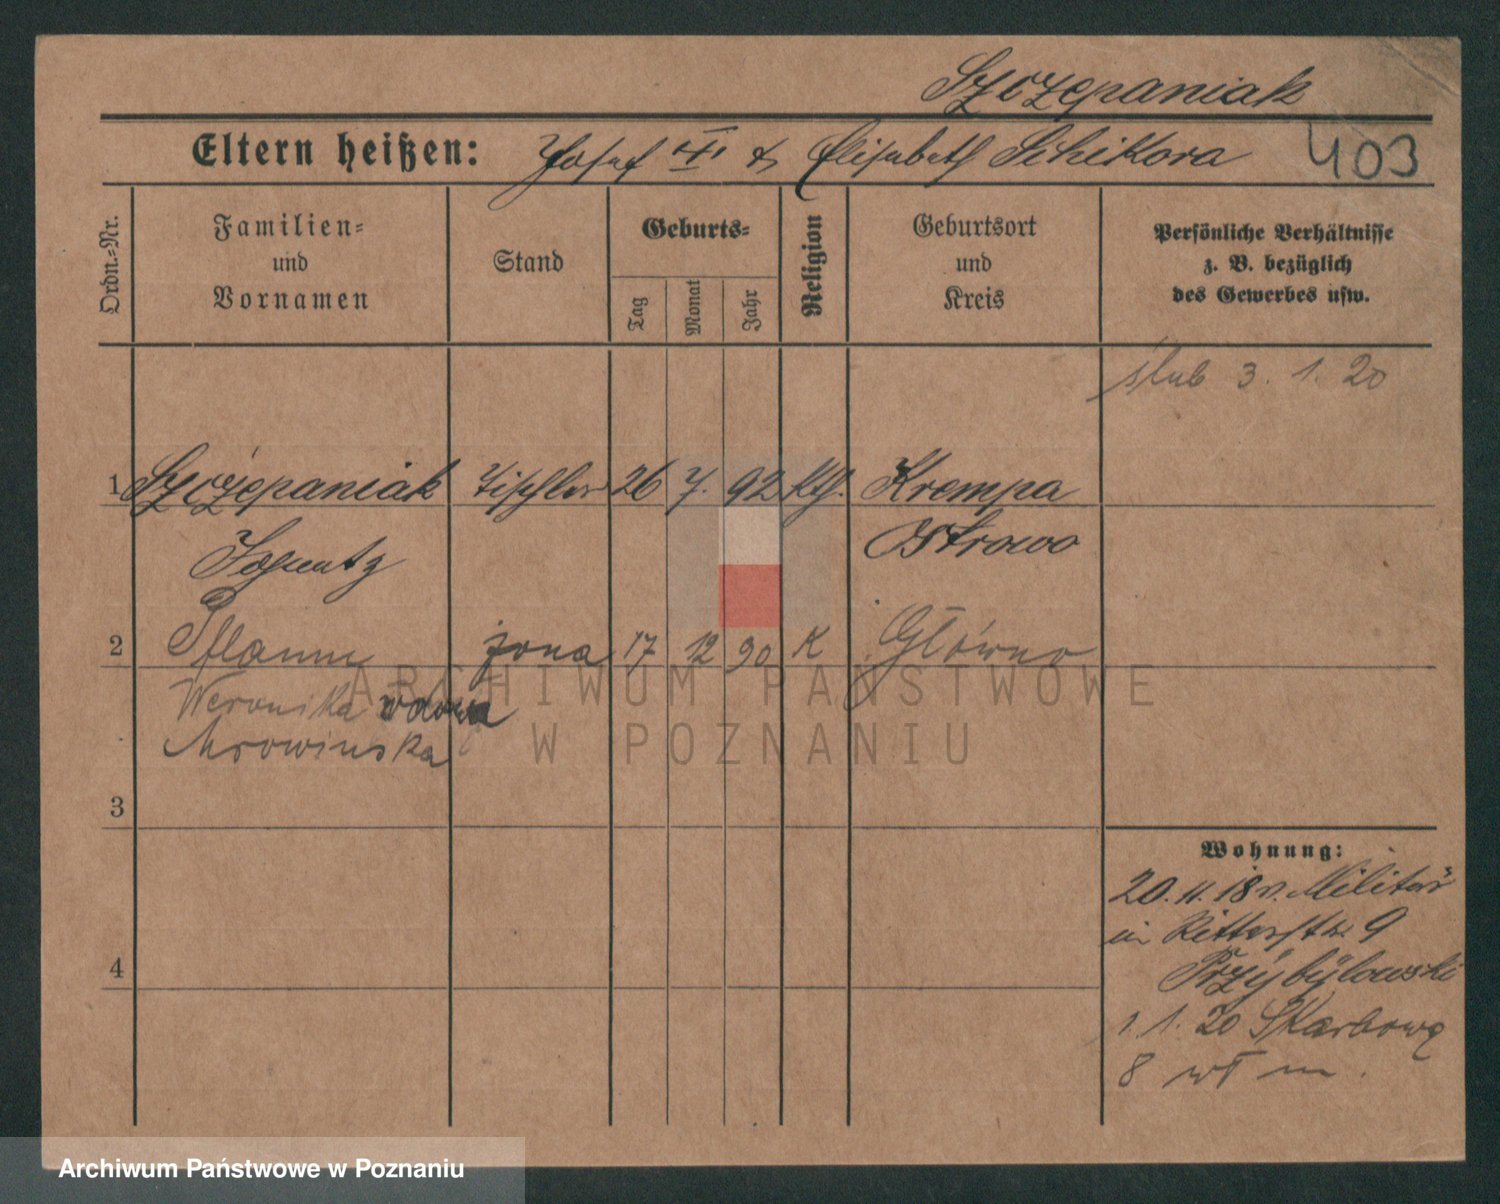 Szczepaniak
Eltern heißen: Josef & Elisabeth Schikora 403
Ordn.-Nr.
Familien=
und
Vornamen
Stand
Geburts=
Tag
Monat
Jahr
Religion
Geburtsort
und
Kreis
Persönliche Verhältnisse
z. B. bezüglich
des Gewerbes usw.
ślub 3. 1. 20
1 Szczepaniak Tischler 26 7. 92 Kth. Krempa
Ignatz Ostrowo
2 Pflaum żona 17 12 90 K Główno
Weronika wdowa
Mrowinska
3
4
Wohnung:
20.11.18 v. Militär
in Ritterstr. 9
Przybylowski
1. 1. 20 Skarbowa
8 wł m.
ARCHIWUM PAŃSTWOWE
W POZNANIU
Archiwum Państwowe w Poznaniu